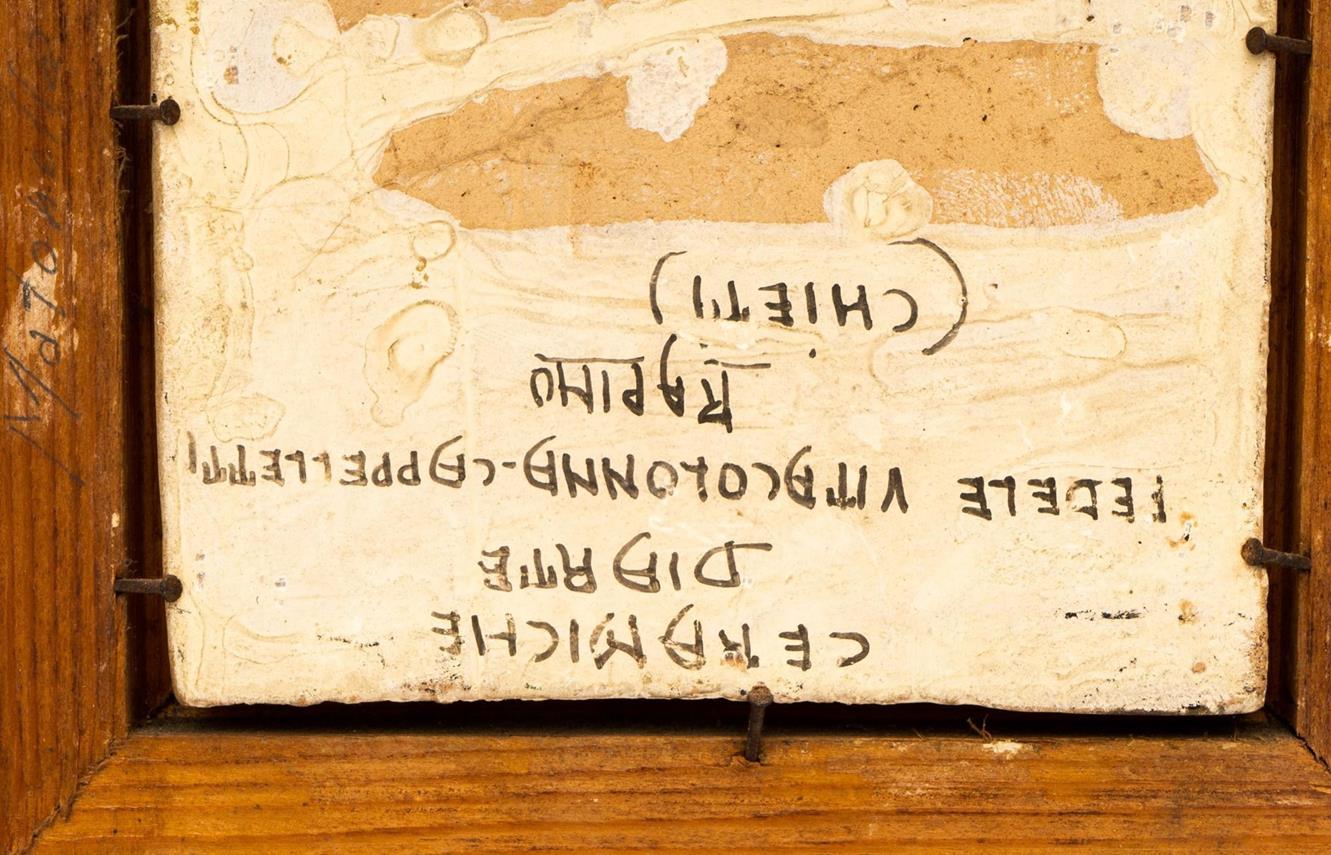 CERAMICHE
DI ARTE
FEDELE VITACOLONNA-CAPPELLETTI
RAPINO
(CHIETI)